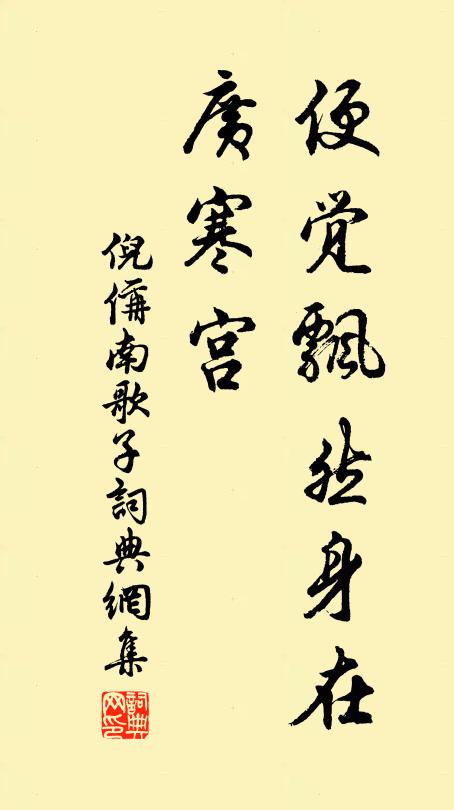 便觉飘然身在
廣寒宫
倪偁南歌子詞典網集
詞典网印